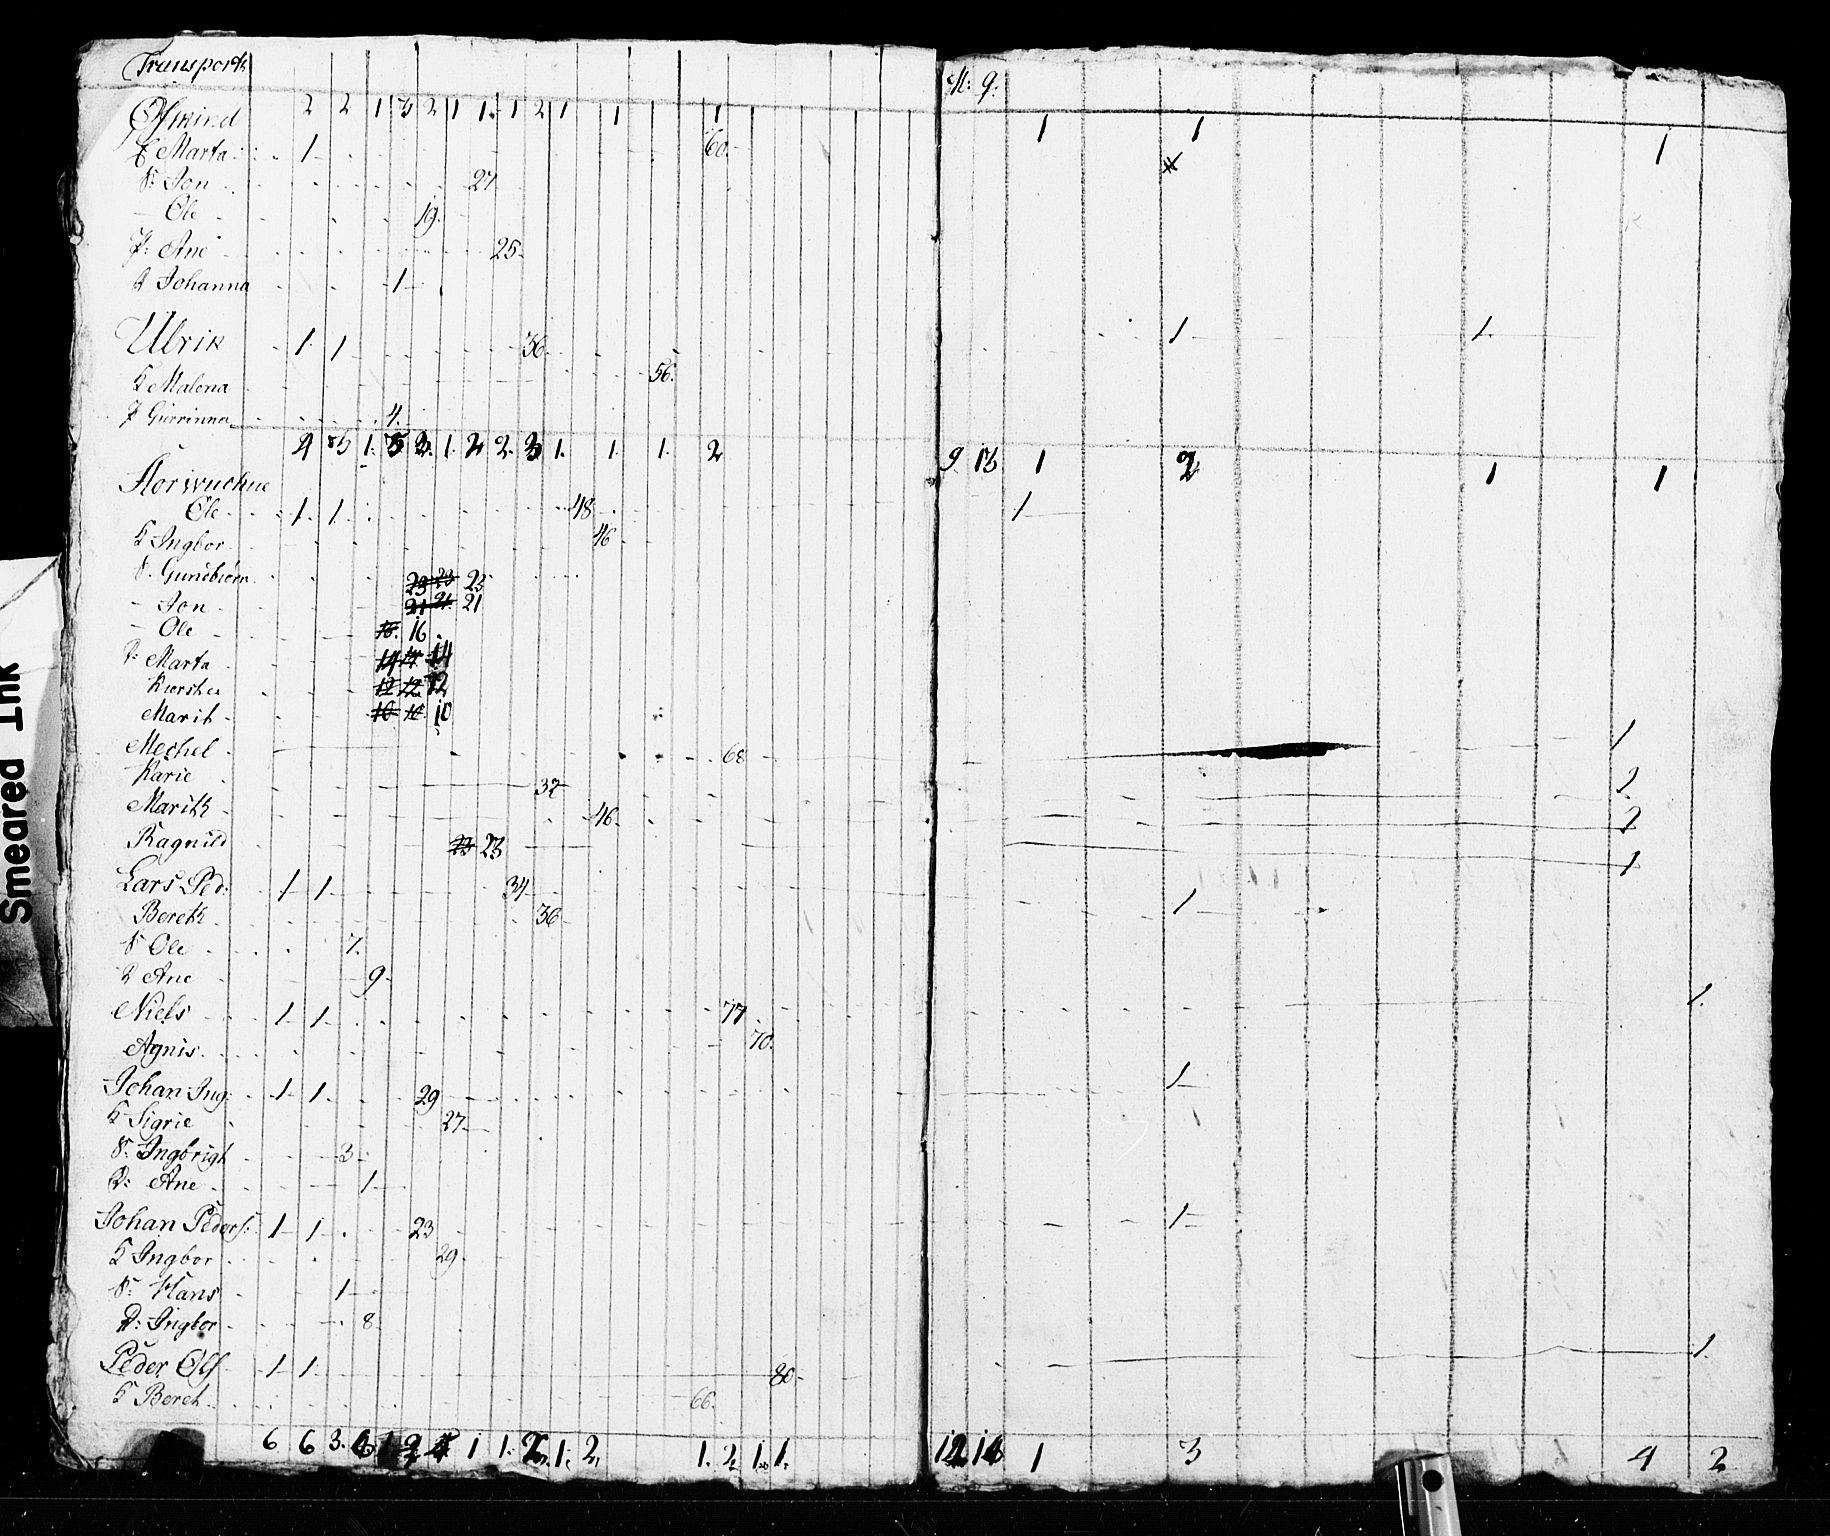 Transporth M: 9.
2 2 1 3 2 1 1. 1 2 1 1 1 1 1 1
Marta 1 60.
S: Jon 27
Ole 19.
P: Ane 25.
D Johanna 1
Ulrik 1. 1 36. 1 1.
K Malena 56.
P Gurrinna 4.
1. 1. 2. 1. 1. 1. 2 9. 13 1 2 1 1
Ole 1. 1. 48 1
K Ingbor 46
S. Gundbiørn 23 23 23
Jon 21 21 21
Ole 16. 16
D: Marta 14 14 14
12 12 12
Marit 10 10 10
Mechel 68 1
Karie 37 1
Marith 46. 1
Ragnild 23 23 1
Lars Ped: 1 1 34 1
Bereth 36
S Ole 7.
D Ane 9.
Niels 1 1 77 1.
Agnis. 70.
Johan Ing: 1 1 29 1
K Sigrie 27
S. Ingbrigt 3
D: Ane 1
Johan Peders: 1 1 23 1
K Ingbor 29
S: Hans 1
D: Ingbor 8
Peder Ols 1 1 80 1.
K Beret 66.
6 6 3. 1 1. 1. 2. 1. 2. 1. 1. 1 3 4 2
Smeared Ink